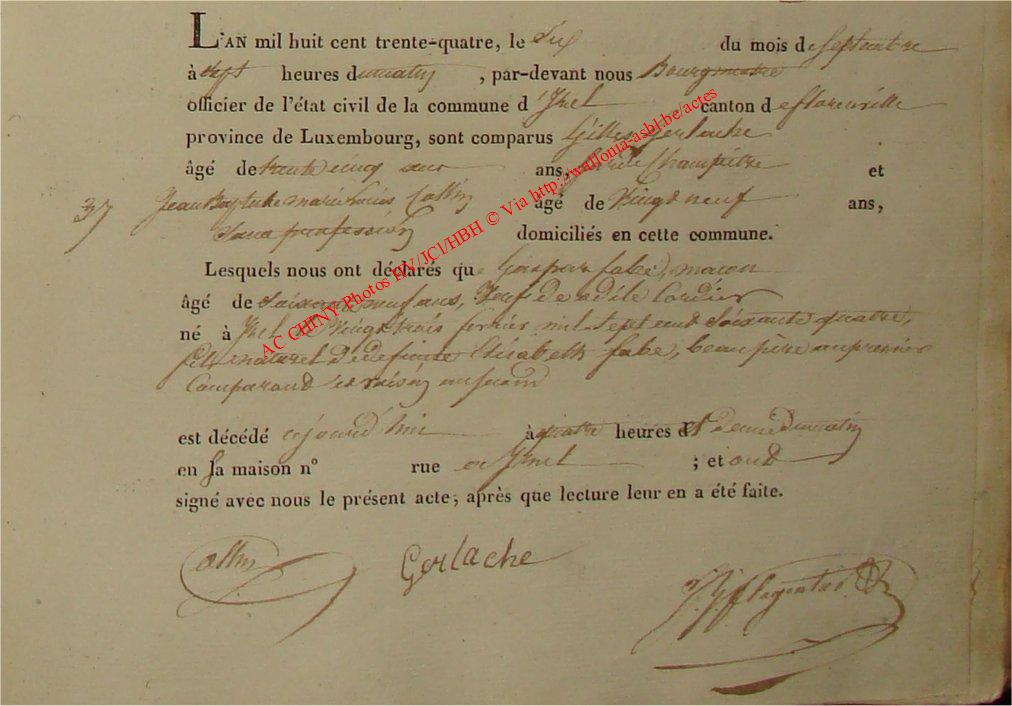 L'AN mil huit cent trente-quatre, le six du mois de septembre
à sept heures du matin, par-devant nous Bourgmestre
officier de l'état civil de la commune d'Izel canton de florenville
province de Luxembourg, sont comparus Gilles Gerlache
âgé de trente cinq ans ans, garde Champêtre et
37 Jean Baptiste marie Collin âgé de Vingt neuf ans,
Sans profession domiciliés en cette commune.
Lesquels nous ont déclarés que Gaspar fabé, macon
âgé de Soixante neuf ans, Veuf de adéle Cordier
né à Izel le Vingt trois fevrier mil Sept cent Soixante quatre,
fils naturel de defunte Elisabeth fabé, beau pere au premier
Comparand et voisin au second
est décédé aujourd'hui à quatre heures et demie du matin
en sa maison nº rue a Izel ; et ont
signé avec nous le présent acte, après que lecture leur en a été faite.
Collin Gerlache
AC CHINY Photos HV/JCl/HBH © Via http://wallonia-asbl.be/actes